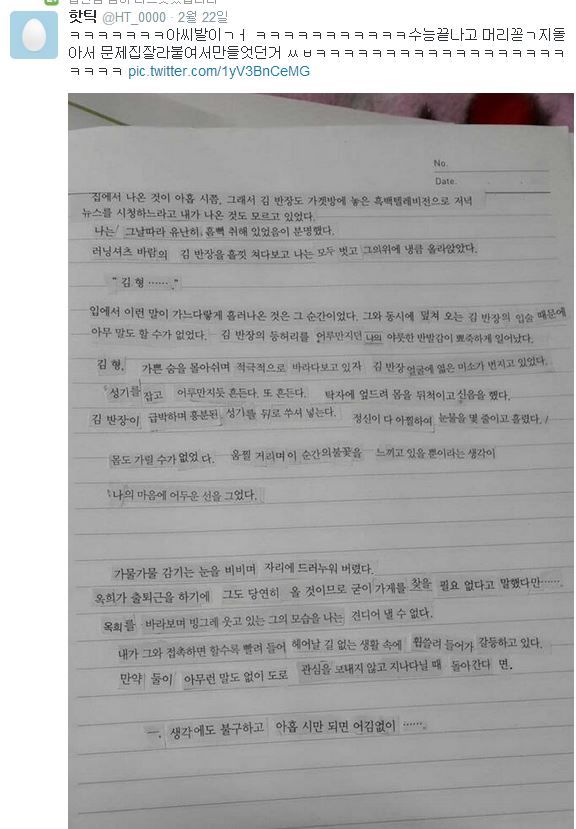 핫틱 @HT_0000 · 2월 22일
ㅋㅋㅋㅋㅋㅋㅋ아씨발이ㄱㅓ ㅋㅋㅋㅋㅋㅋㅋㅋㅋㅋ수능끝나고 머리꼳ㄱ지돌
아서 문제집잘라붙여서만들엇던거 ㅆㅂㅋㅋㅋㅋㅋㅋㅋㅋㅋㅋㅋㅋㅋㅋㅋㅋㅋㅋㅋ
ㅋㅋㅋㅋ pic.twitter.com/1yV3BnCeMG
No.
Date.
집에서 나온 것이 아홉 시쯤, 그래서 김 반장도 가겟방에 놓은 흑백텔레비전으로 저녁
뉴스를 시청하느라고 내가 나온 것도 모르고 있었다.
나는/ 그날따라 유난히, 흠뻑 취해 있었음이 분명했다.
러닝셔츠 바람의 김 반장을 흘낏 쳐다보고 나는 모두 벗고 그의위에 냉큼 올라앉았다.
“ 김 형 …….”
입에서 이런 말이 가느다랗게 흘러나온 것은 그 순간이었다. 그와 동시에 덮쳐 오는 김 반장의 입술 때문에
아무 말도 할 수가 없었다. 김 반장의 등허리를 어루만지던 나의 야릇한 반발감이 뾰죽하게 일어났다.
김 형. 가쁜 숨을 몰아쉬며 적극적으로 바라다보고 있자 김 반장 얼굴에 엷은 미소가 번지고 있었다.
성기를 잡고 어루만지듯 흔든다. 또 흔든다. 탁자에 엎드려 몸을 뒤척이고 신음을 했다.
김 반장이 급박하며 흥분된 성기를 뒤로 쑤셔 넣는다. 정신이 다 아찔하여 눈물을 몇 줄이고 흘렸다. /
몸도 가릴 수가 없었 다. 움찔 거리며 이 순간의불꽃을 느끼고 있을 뿐이라는 생각이
나의 마음에 어두운 선을 그었다.
가물가물 감기는 눈을 비비며 자리에 드러누워 버렸다.
옥희가 출퇴근을 하기에 그도 당연히 올 것이므로 굳이 가게를 찾을 필요 없다고 말했다만…….
옥희를 바라보며 빙그레 웃고 있는 그의 모습을 나는 견디어 낼 수 없다.
내가 그와 접촉하면 할수록 빨려 들어 헤어날 길 없는 생활 속에 휩쓸려 들어가 갈등하고 있다.
만약 둘이 아무런 말도 없이 도로 관심을 보내지 않고 지나다닐 때 돌아간다 면.
ㅡ. 생각에도 불구하고 아홉 시만 되면 어김없이 …….